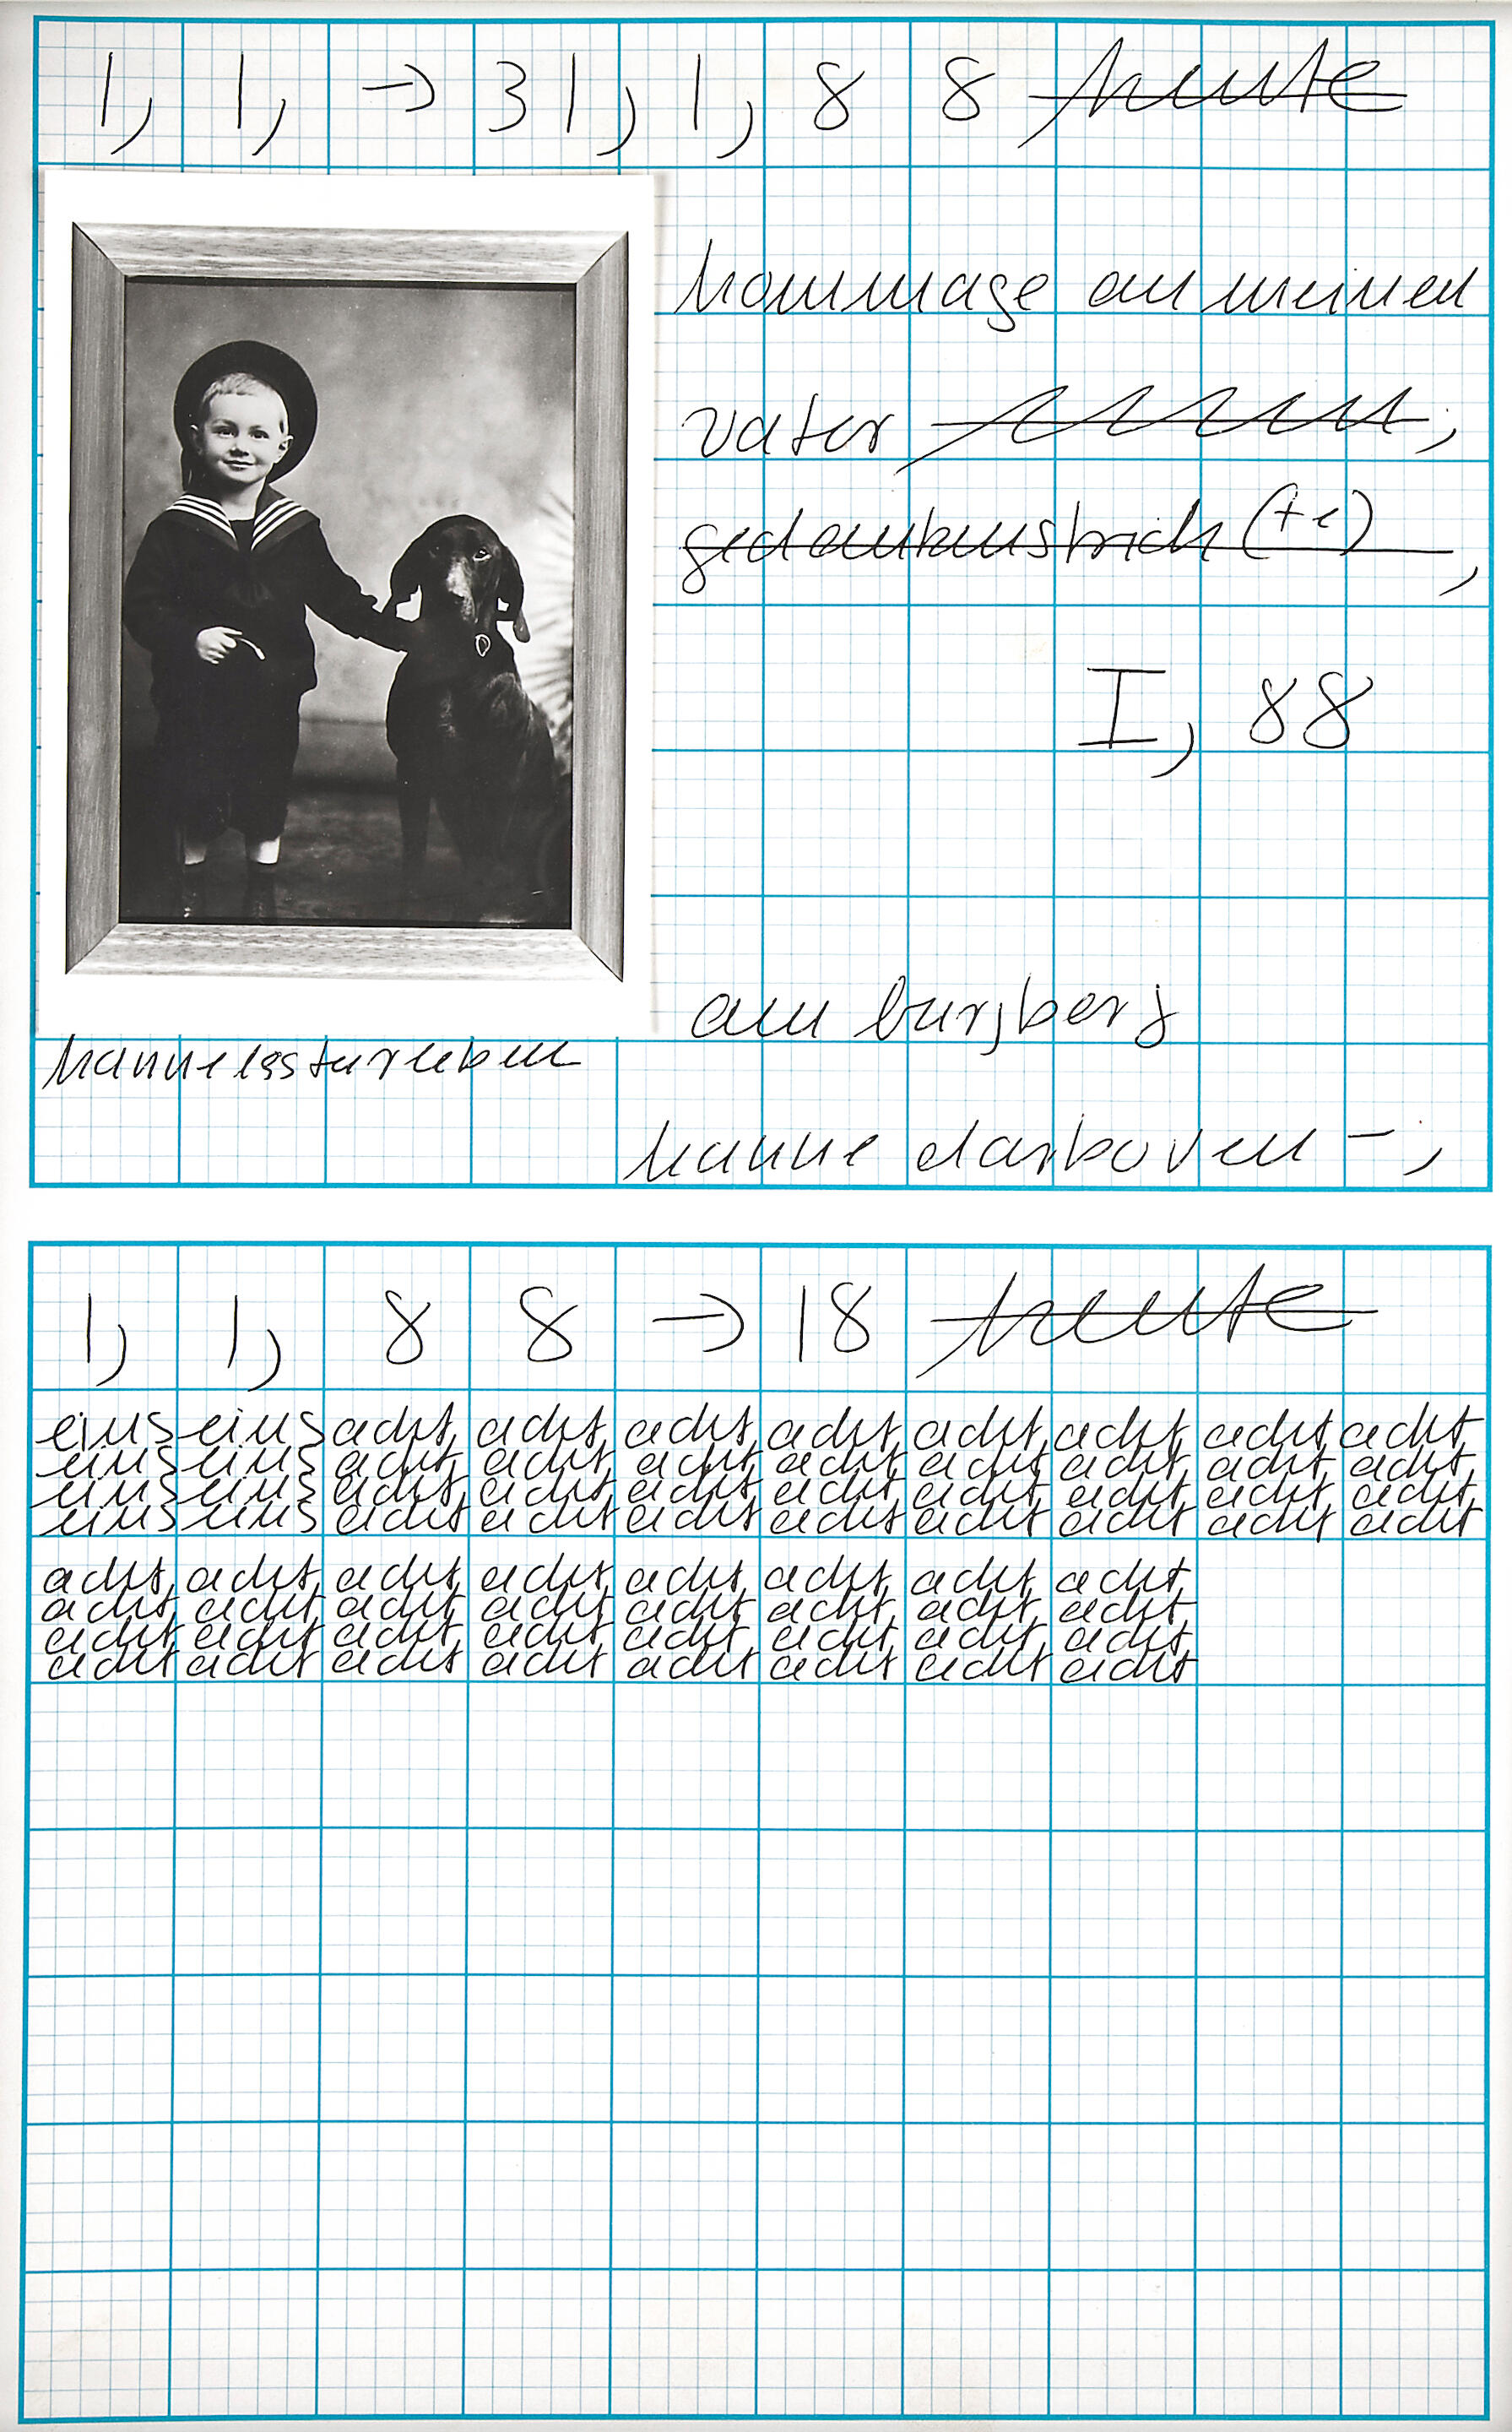 1, 1, → 31, 1, 8 8 heute
hommage an meinen
vater ,
gedankenstrich (+e) ,
I, 88
am burgberg
hanne darboven – ,
1, 1, 8 8 → 18 heute
eins eins acht, acht, acht, acht, acht, acht, acht, acht,
eins eins acht, acht, acht, acht, acht, acht, acht, acht,
eins eins acht, acht, acht, acht, acht, acht, acht, acht,
eins eins acht acht acht acht acht acht acht acht
acht, acht, acht, acht, acht, acht, acht, acht,
acht, acht, acht, acht, acht, acht, acht, acht,
acht, acht, acht, acht, acht, acht, acht, acht,
acht acht acht acht acht acht acht acht